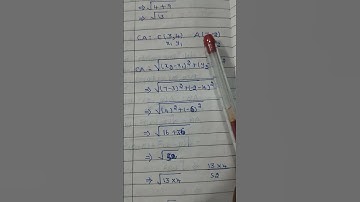 ⇒ √4+9
⇒ √13
CA = C(3,4) A(
x₁ y₁
CA = √(x₂-x₁)²+(y₂
⇒ √(7-3)²+(-2-4)²
⇒ √(4)²+(-6)²
⇒ √16+36
⇒ √52
⇒ √13×4
13×4
52